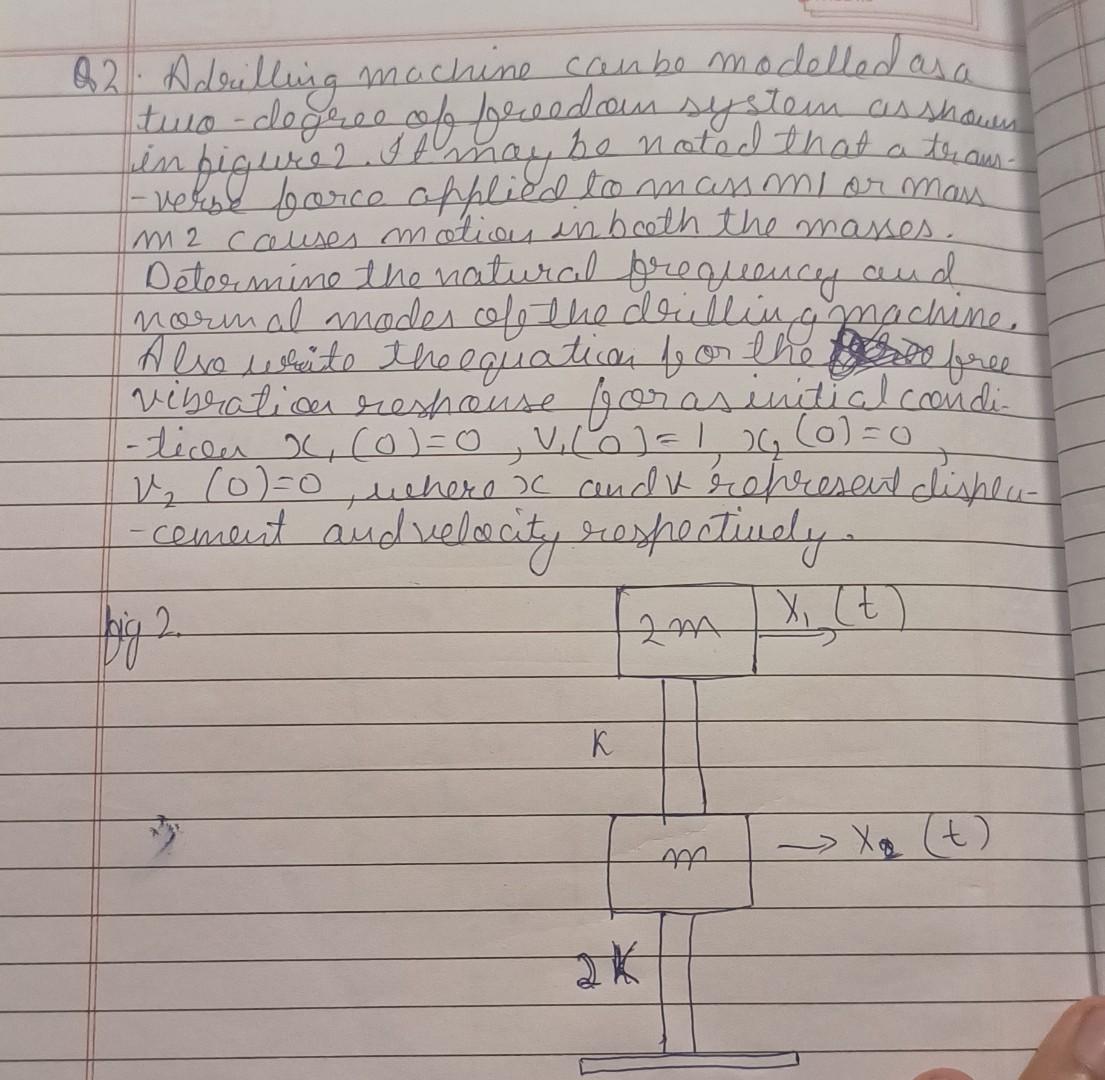 Q2. A drilling machine can be modelled as a
two-degree of freedom system as shown
in figure 2. It may be noted that a trans-
-verse force applied to mass m1 or mass
m2 causes motion in both the masses.
Determine the natural frequency and
normal modes of the drilling machine.
Also write the equation for the free
vibration response for as initial condi-
-tion x₁(0)=0, V₁(0)=1, x₂(0)=0,
V₂(0)=0, where x and v represent displa-
-cement and velocity respectively.
fig 2.
2m X₁(t)
K
m → X₂(t)
2K